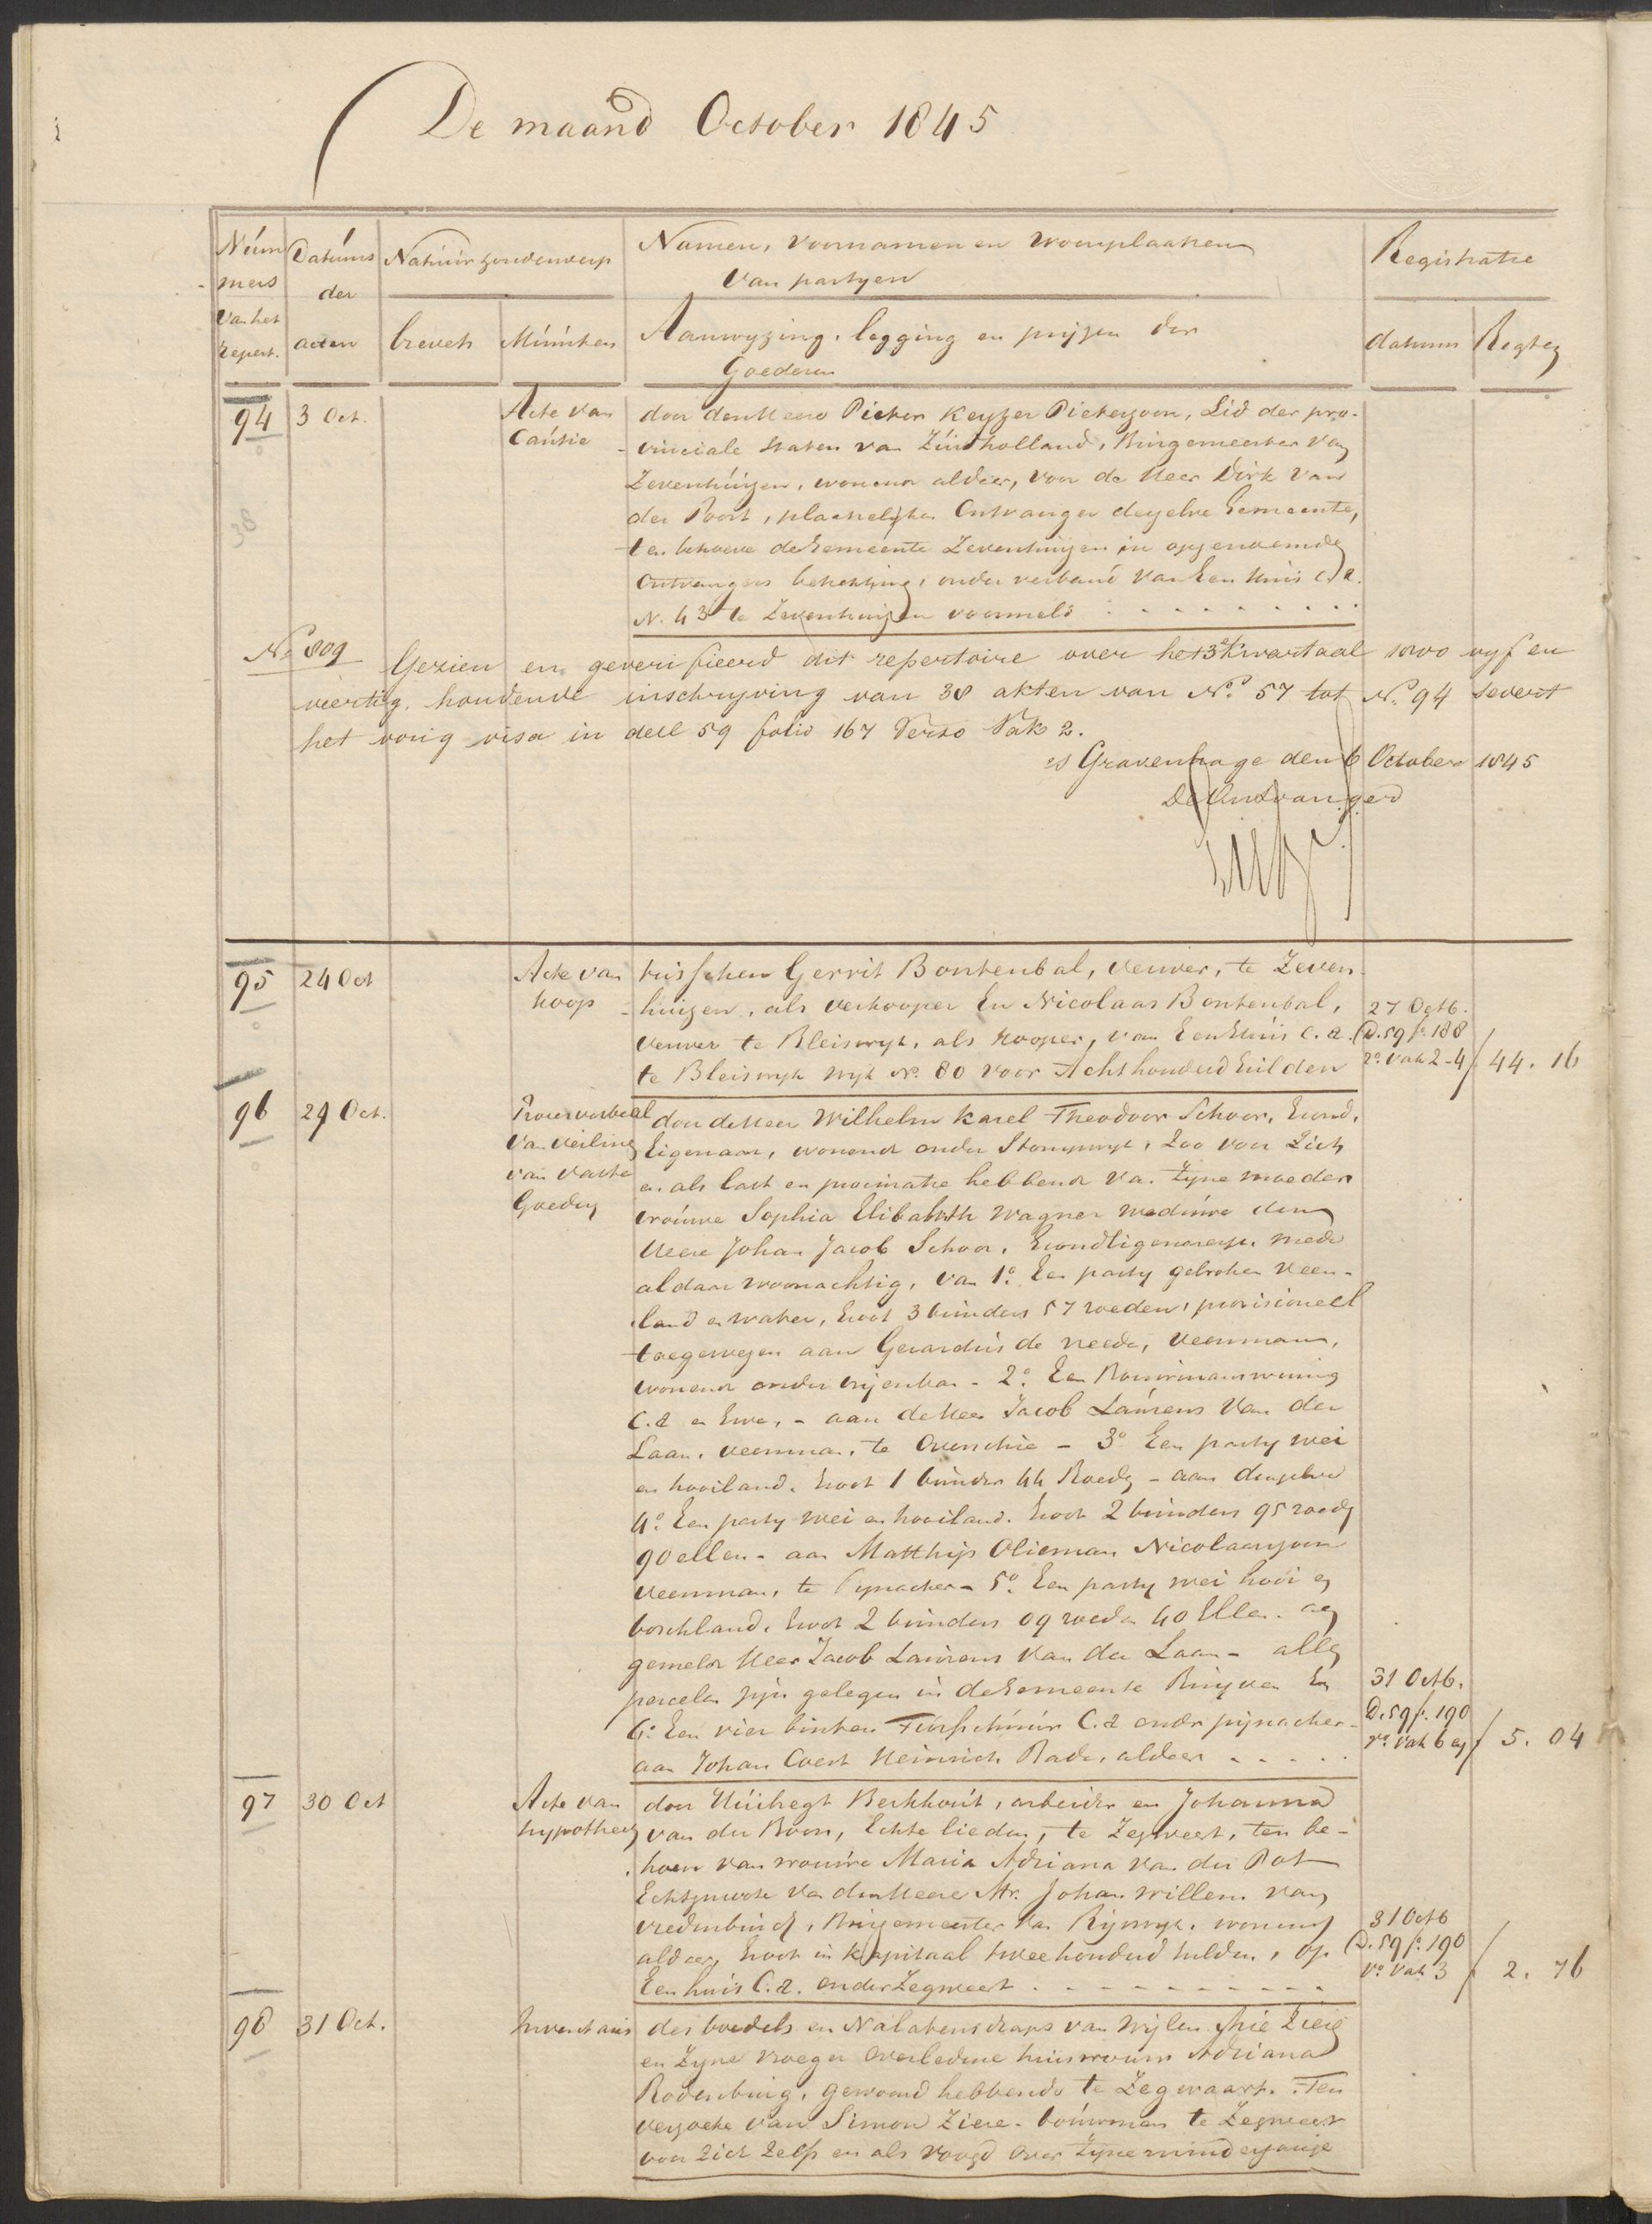 De maand October 1845
Num Datums Natuur en onderwerp Namen, Voornamen en Woonplaatsen Registratie
mers der Van partyen
Van het
Repert. acten brevets Minuten Aanwyzing, legging en prijzen der datums Regten
Goederen
94 3 Oct. Acte van door den Heere Pieter Keyzer Pieterzoon, Lid der pro-
Cautie vinciale staten van Zuidholland, Burgemeester van
Zevenhuizen, wonend aldaar, voor de Heer Dirk van
38
der Poort, plaatselijken Ontvanger dezelve Gemeente,
ten behoeve de Gemeente Zevenhuizen in opgenoemde
Ontvangers betrekking, onder verband van Een Huis C.A.
N. 43 te Zevenhuizen voormeld
No 809
Gezien en geverifieerd dit repertoire over het 3e Kwartaal 1800 vyf en
veertig, houdende inschryving van 38 akten van No 57 tot No 94 severt
het vorig visa in deel 59 folio 167 Verso Vak 2.
's Gravenhage den 6 October 1845
De Ontvanger
95 24 Oct Acte van tusschen Gerrit Bontenbal, veniver, te Zeven-
koop huizen, als verkooper En Nicolaas Bontenbal, 27 Octb.
te Bleiswyk, als kooper, van Een Huis C.A. D. 59 f. 188
te Bleiswyk wyk No. 80 voor Achthonderd Gulden ro. vak 2-4 f 44. 16
96 29 Oct. Procesverbaal door de Heer Wilhelm Karel Theodoor Schoor, Grond,
Van veiling Eigenaar, wonend onder Stompwyk, Zoo voor Zich
van vaste en als last en procuratie hebbend van Zyne moeder
Goederen vrouwe Sophia Elisabeth Wagner weduwe den
Heere Johan Jacob Schoor, Grondeigenaresse, mede
aldaar woonachtig, van 1o. Een party gebroken Veen-
land en water, Groot 3 bunders 57 roeden, provisioneel
toegewezen aan Gerardus de Reede, veenman,
wonend onder Vrijenban - 2o. Een Bouwmanswoning
C.A en Erve, - aan de Heer Jacob Laurens Van der
Laan, veenman, te Overschie - 3o Een party wei
en hooiland, Groot 1 bunder 44 Roeden - aan denzelve
4o. Een party wei en hooiland, Groot 2 bunders 95 roeden
90 ellen - aan Matthijs Olieman Nicolaaszoon
veenman, te Pynacker - 5o. Een party wei hooi en
boschland, Groot 2 bunders 09 roeden 40 Ellen - aan
gemeld Heer Jacob Laurens Van der Laan - alle
percelen zijn gelegen in de Gemeente En 31 Octb.
6o. Een vier binten Turfschuur C.A onder pijnacker - D. 59 f. 190
aan Johan Coert Heinrich Rade, aldaar ro. vak 6 en f 5. 04
97 30 Oct Acte van door Huibregt Berkhout, arbeider en Johanna
hypotheek van der Boon, Echte lieden, te Zegweert, ten be-
hoeve van vrouwe Maria Adriana van der Pot
Echtgenoote van den Heere Mr. Johan Willem van
Vredenburch, Burgemeester van Rijswyk, wonend 31 Octb
aldaar, Groot in Kapitaal tweehonderd Gulden, op D. 59 f. 190
Een huis C.A. onder Zegweert vo. vak 3 f 2. 76
98 31 Oct. Inventaris des boedels en Nalatenschaps van Wijlen Arie Ziere
en Zyne vroeger overledene huisvrouw Adriana
Rodenburg, gewoond hebbende te Zegwaart. Ten
verzoeke van Simon Ziere - bouwman te Zegweert
voor Zich Zelf en als voogd over Zyne minderjarige